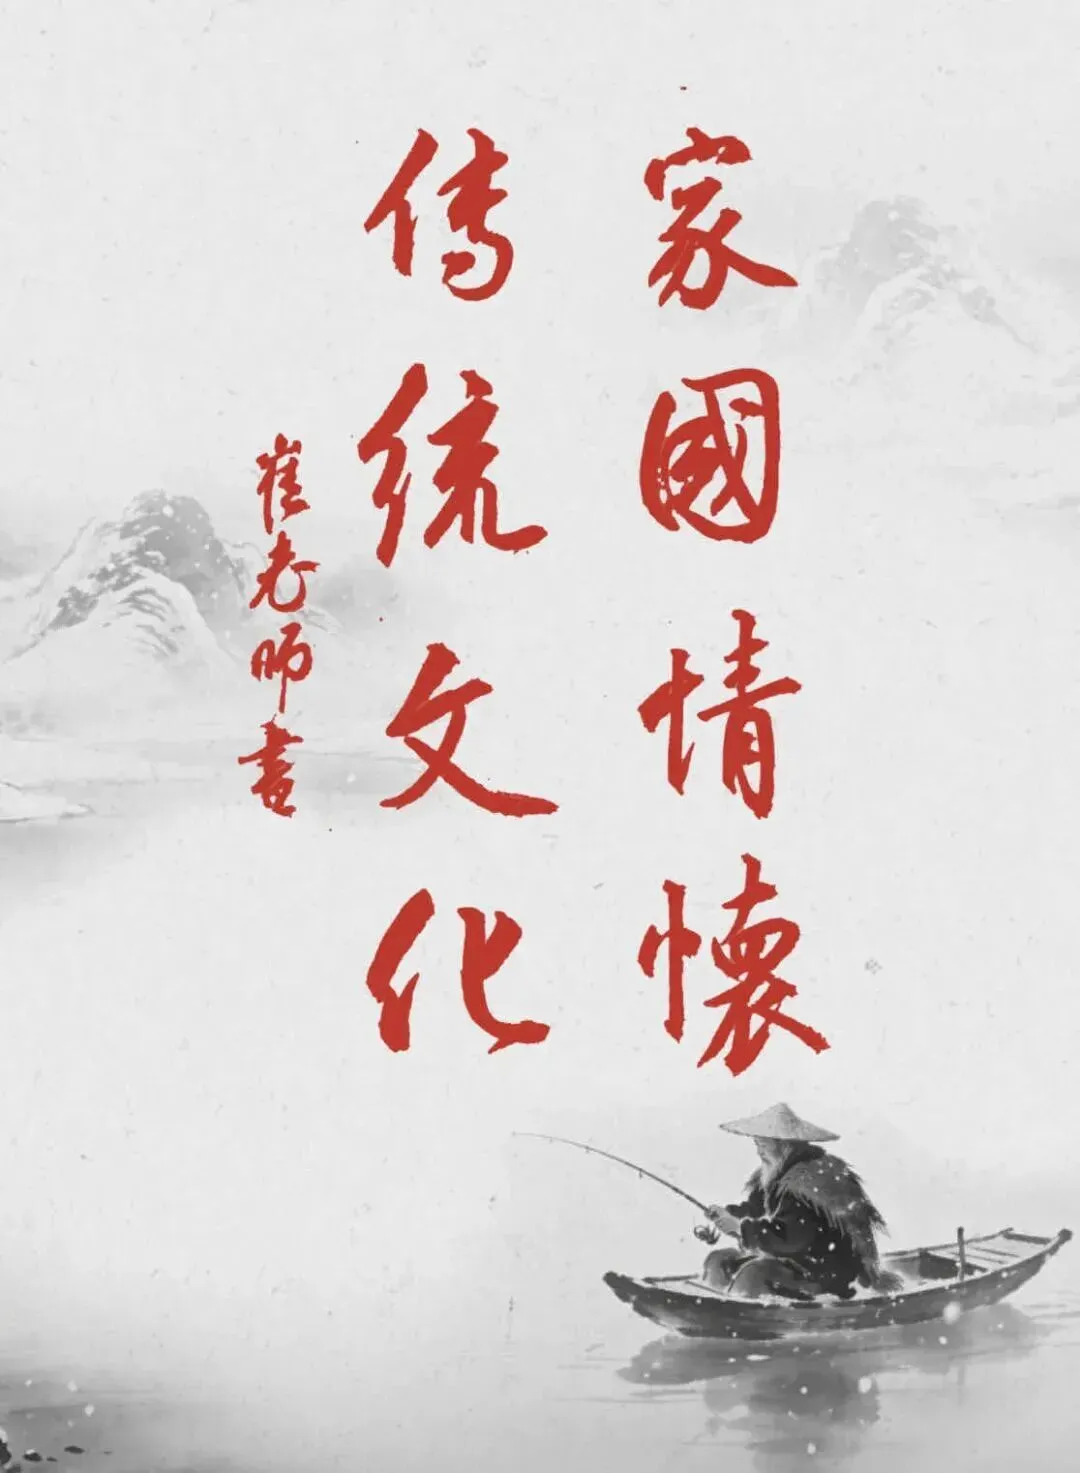 家國情懷
传統文化
崔老師書